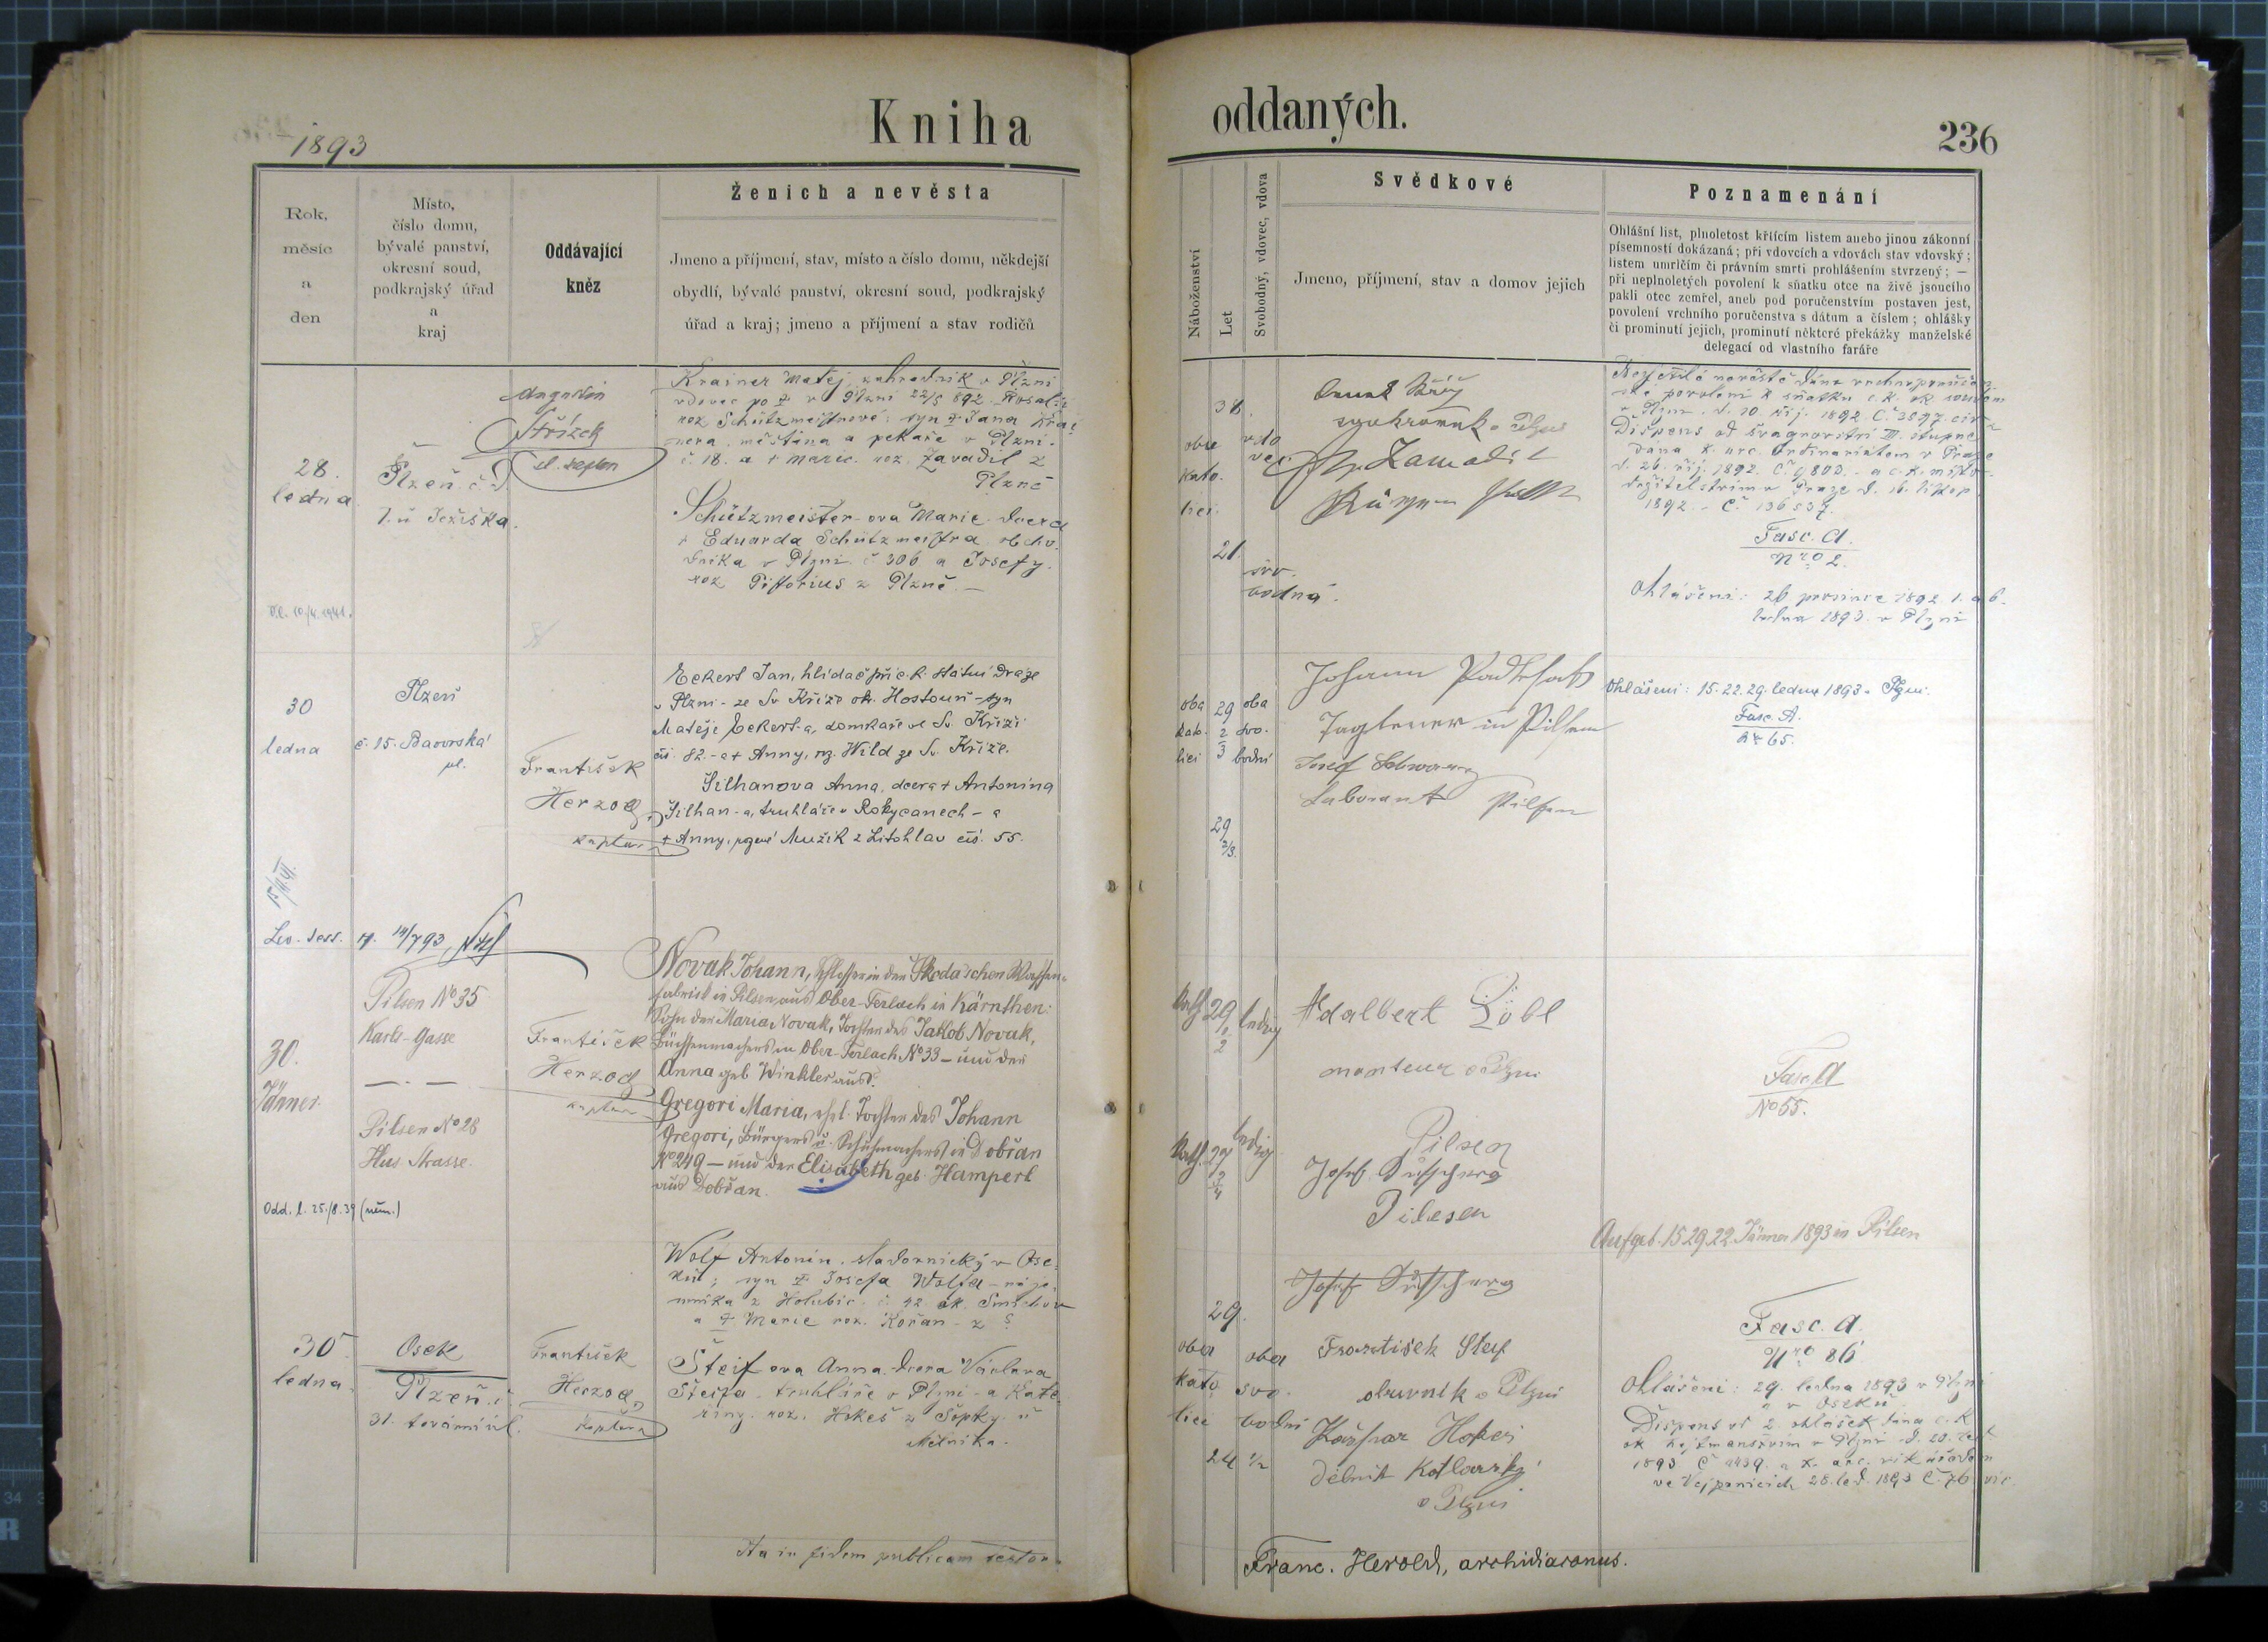 1893
Kniha
oddaných.
236
Rok,
měsíc
a
den
Místo,
číslo domu,
bývalé panství,
okresní soud,
podkrajský úřad
a
kraj
Oddávající
kněz
Ženich a nevěsta
Jmeno a příjmení, stav, místo a číslo domu, někdejší
obydlí, bývalé panství, okresní soud, podkrajský
úřad a kraj; jmeno a příjmení a stav rodičů
Náboženství
Let
Svobodný, vdovec, vdova
Svědkové
Jmeno, příjmení, stav a domov jejich
Poznamenání
Ohlášní list, plnoletost křticím listem anebo jinou zákonní
písemností dokázaná; při vdovcích a vdovách stav vdovský;
listem umrlčím či právním smrti prohlášením stvrzený; —
při neplnoletých povolení k sňatku otce na živě jsoucího
pakli otec zemřel, aneb pod poručenstvím postaven jest,
povolení vrchního poručenstva s dátum a číslem; ohlášky
či prominutí jejich, prominutí některé překážky manželské
delegací od vlastního faráře
28.
ledna
Plzeň č. d.
7. u Ježíška.
Augustin
Střížek
Krainer Matěj, zahradník v Plzni
vdovec po † v Plzni 22/5 892 Rosalii
roz. Schützmeistrové; syn † Jana Krai
nera, měšťana a pekaře v Plzni.
č. 18. a † Marie. roz. Zavadil z
Plzně
Schützmeister-ova Marie. dcera
† Eduarda Schützmeistra, obcho-
dníka v Plzni č 306 a Josefy.
roz Pistorius z Plzně. —
oba
kato
lici.
38.
vdo
vec
21.
svo.
bodná.
Zavadil
v Plzni. d. 10 říj. 1892. Č 3897 civ
Dispens od švagrovství III. stupně
dána k. arc. Ordinariátem v Praze
d. 26. říj. 1892. Č 9802. - a c. k. místo-
držitelstvím v Praze d. 16. listop
1892. - Č 136537.
Fasc. A.
Nro 2.
Ohlášení: 26 prosince 1892. 1. a 6.
ledna 1893. v Plzni
O.l. 10/4. 1941.
30
ledna
Plzeň
č. 15. Bavorská
ul.
František
Herzog,
kaplan
Eckert Jan, hlídač při c. k. státní dráze
v Plzni - ze Sv. Kříže ok. Hostouň - syn
Matěje Eckert-a, domkáře ve Sv. Kříži
čís. 82. - a † Anny, roz. Wild ze Sv. Kříže.
Šilhanova Anna, dcera † Antonína
Šilhan-a, truhláře v Rokycanech - a
† Anny, rozené Mužik z Litohlav čís. 55.
oba
kato.
lici
29
2
3
oba
svo.
bodní
29
2/3.
Johann
Taglöner in Pilsen
Josef Schwarz
Laborant Pilsen
Ohlášení: 15. 22. 29. ledna 1893 v Plzni.
Fasc. A.
Nr 65.
14/7 93
Pilsen No 35
Karls-Gasse
30.
Jänner
Pilsen No 28
Hus Strasse.
František
Herzog
kaplan
Novak Johann, Schlosser in der Skoda'schen Waffen-
fabrik in Pilsen, aus Ober-Ferlach in Kärnthen:
Sohn der Maria Novak, Tochter des Jakob Novak,
Büchsenmachers in Ober-Ferlach No 33 — und der
Anna geb Winkler aus d.
Gregori Maria, ehel. Tochter des Johann
Gregori, Bürgers u. Schuhmachers in Dobřan
No 249 — und der Elisabeth geb. Hamperl
aus Dobřan.
Odd. l. 25./8. 39 (něm.)
Kath
29
1
2
ledig
Kath.
27
3
4
ledig
Adalbert Löbl
monteur v Plzni
Pilsen
Josef
Pilsen
Fasc. A
No 55.
Aufgeb. 15 29. 22. Jänner 1893 in Pilsen
30
ledna.
Osek
Plzeň. č.
31. tovární úl.
František
Herzog,
kaplan
Wolf Antonín. sladovnický v Ose-
ku; syn † Josefa Wolfa - náje-
mníka z Holubic. č. 42 ok. Smíchov
a † Marie roz. Kořan - z
Steif ova Anna dcera Václava
Steifa - truhláře v Plzni - a Kate-
řiny. roz. Hokeš z Šopky. u
Mělníka.
29.
oba
kato
lici
oba
svo.
bodní
24 1/2
František Steif
obuvník v Plzni
Kašpar Hokeš
dělník Kotlarský
v Plzni
Fasc. A.
Nro 86
Ohlášení: 29. ledna 1893 v Plzni
a v Oseku.
Dispens od 2. ohlášek dána c. k.
ok. hejtmanstvím v Plzni d. 20. led
ve Vejprnicích 28. led. 1893 Č. 76 vic.
Ita in fidem publicam testor
Franc. Herold, archidiaconus.